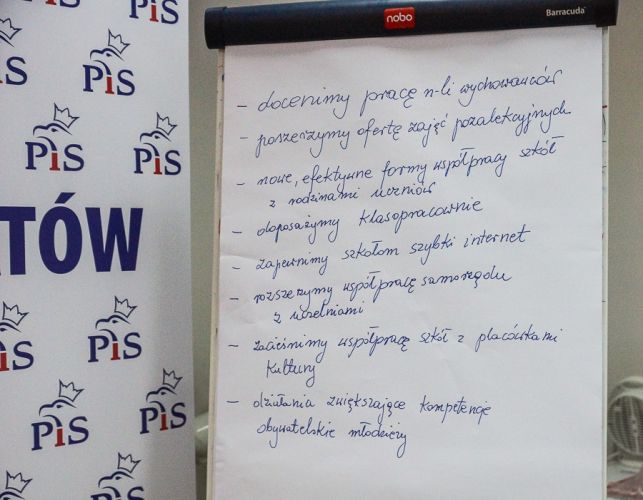 PiS
PiS
PiS
PiS
PiS
PiS
TÓW
PiS
PiS
PiS
PiS
nobo
Barracuda
- docenimy pracę n-li wychowawców
- poszerzymy ofertę zajęć pozalekcyjnych
- nowe, efektywne formy współpracy szkół
z rodzinami uczniów
- doposażymy klasopracownie
- zapewnimy szkołom szybki internet
- rozszerzymy współpracę samorządu
z uczelniami
- zacieśnimy współpracę szkół z placówkami
kultury
- działania zwiększające kompetencje
obywatelskie młodzieży